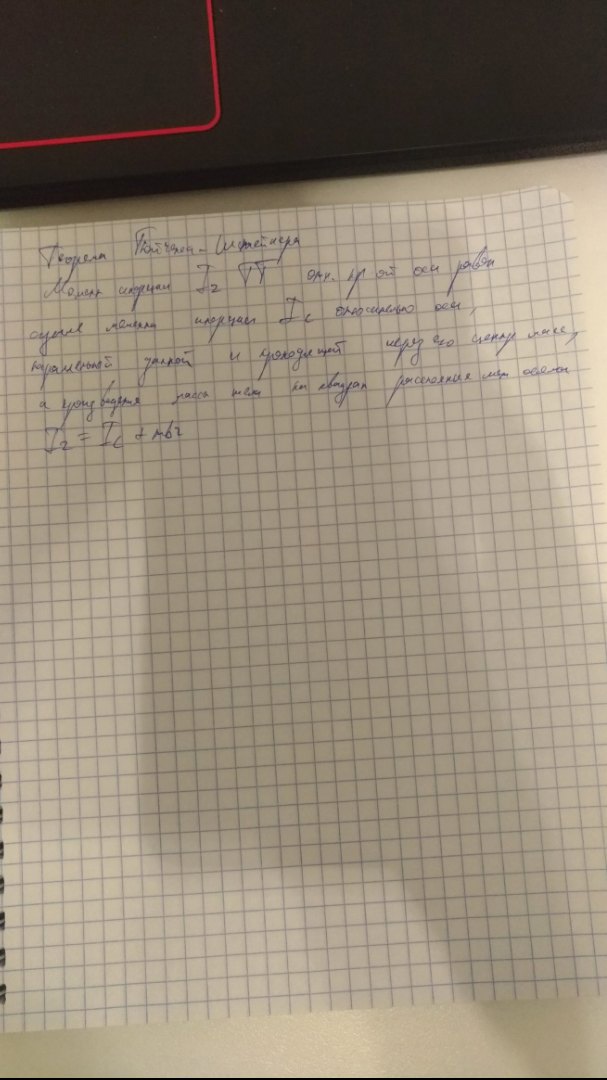 Теорема Гюйгенса-Штейнера
Момент инерции I₂ ТТ отн. пр ой оси равен
сумме момента инерции I_c относительно оси,
параллельной данной и проходящей через его центр масс,
и произведения массы тела на квадрат расстояния меж осями
I₂ = I_c + mb²